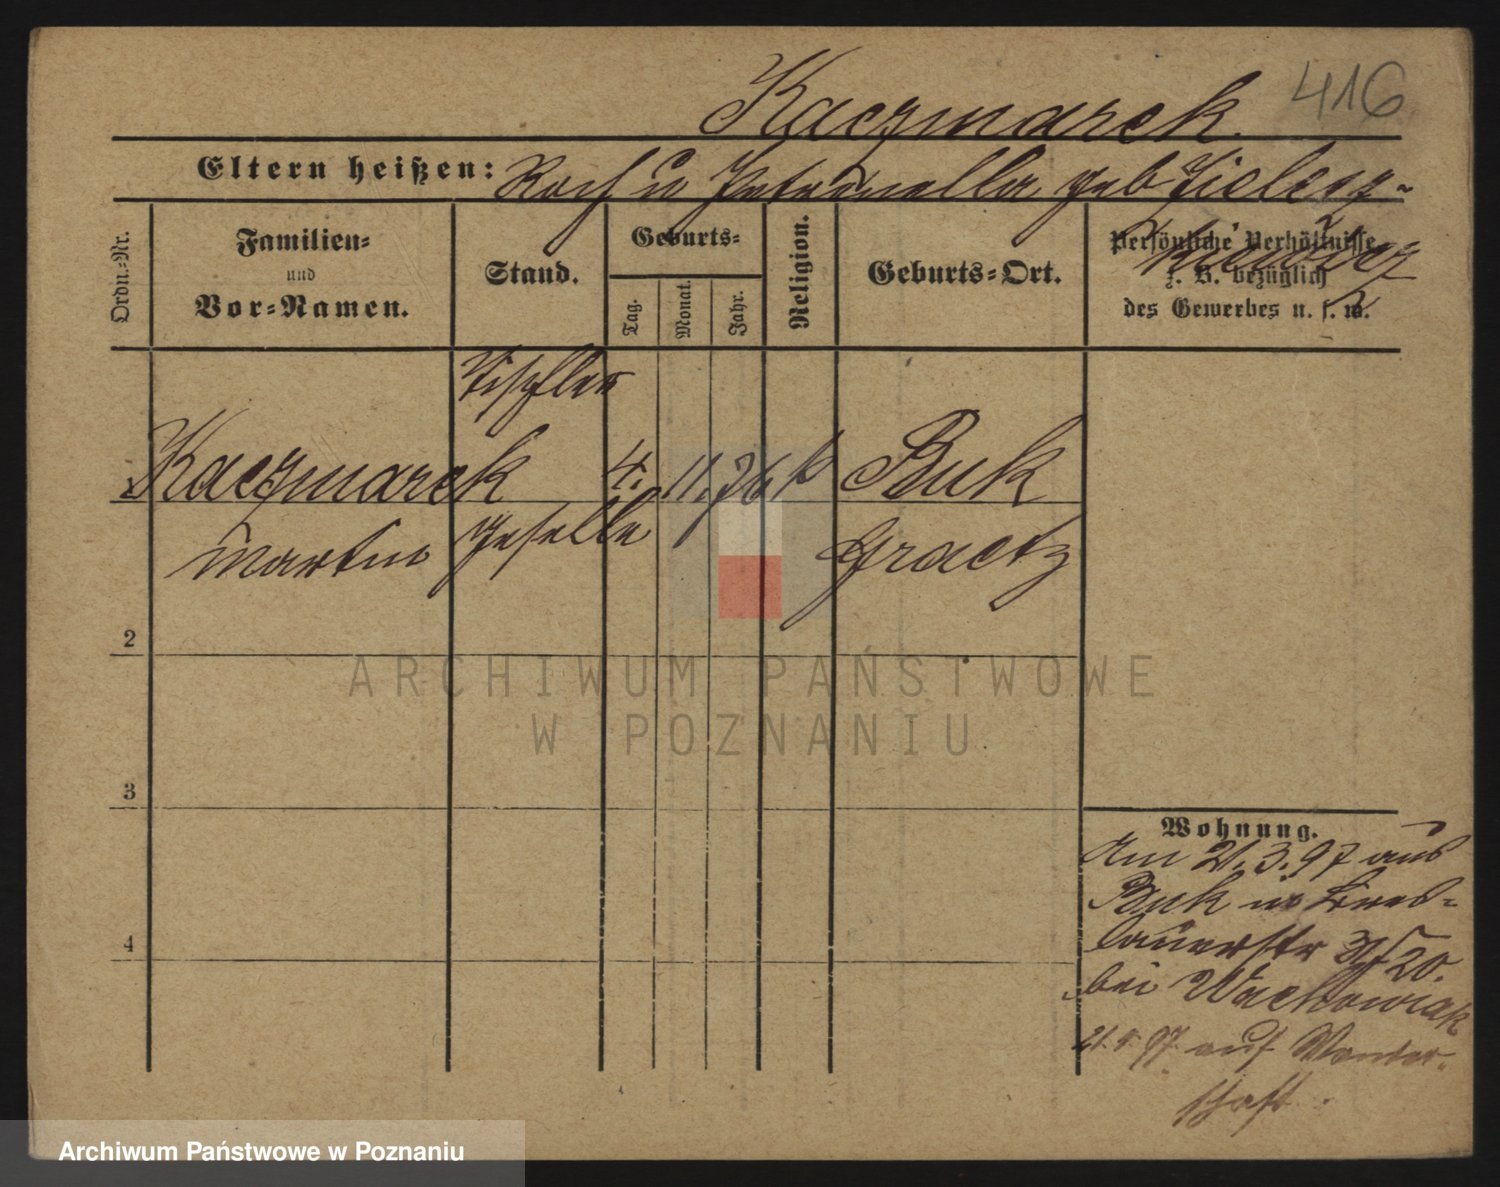 Kaczmarek. 416
Eltern heißen: Roch u Petronella geb Zielesz-
kiewicz
Ordn.-Nr.
Familien-
und
Vor-Namen.
Stand.
Geburts-
Tag.
Monat.
Jahr.
Religion.
Geburts-Ort.
Persönliche Verhältnisse
z. B. bezüglich
des Gewerbes u. s. w.
Tischler
1 Kaczmarek 4. 11. 76 k Buk
Martin geselle Graetz
2
3
4
Wohnung.
Am 21.3.97 aus
Buk in Bres-
lauerstr 20.
bei Wachowiak
21.5 97 auf Wander-
schaft.
ARCHIWUM PAŃSTWOWE
W POZNANIU
Archiwum Państwowe w Poznaniu